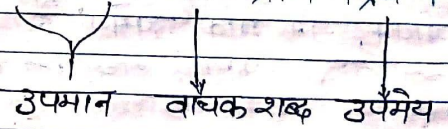 उपमान वाचक शब्द उपमेय